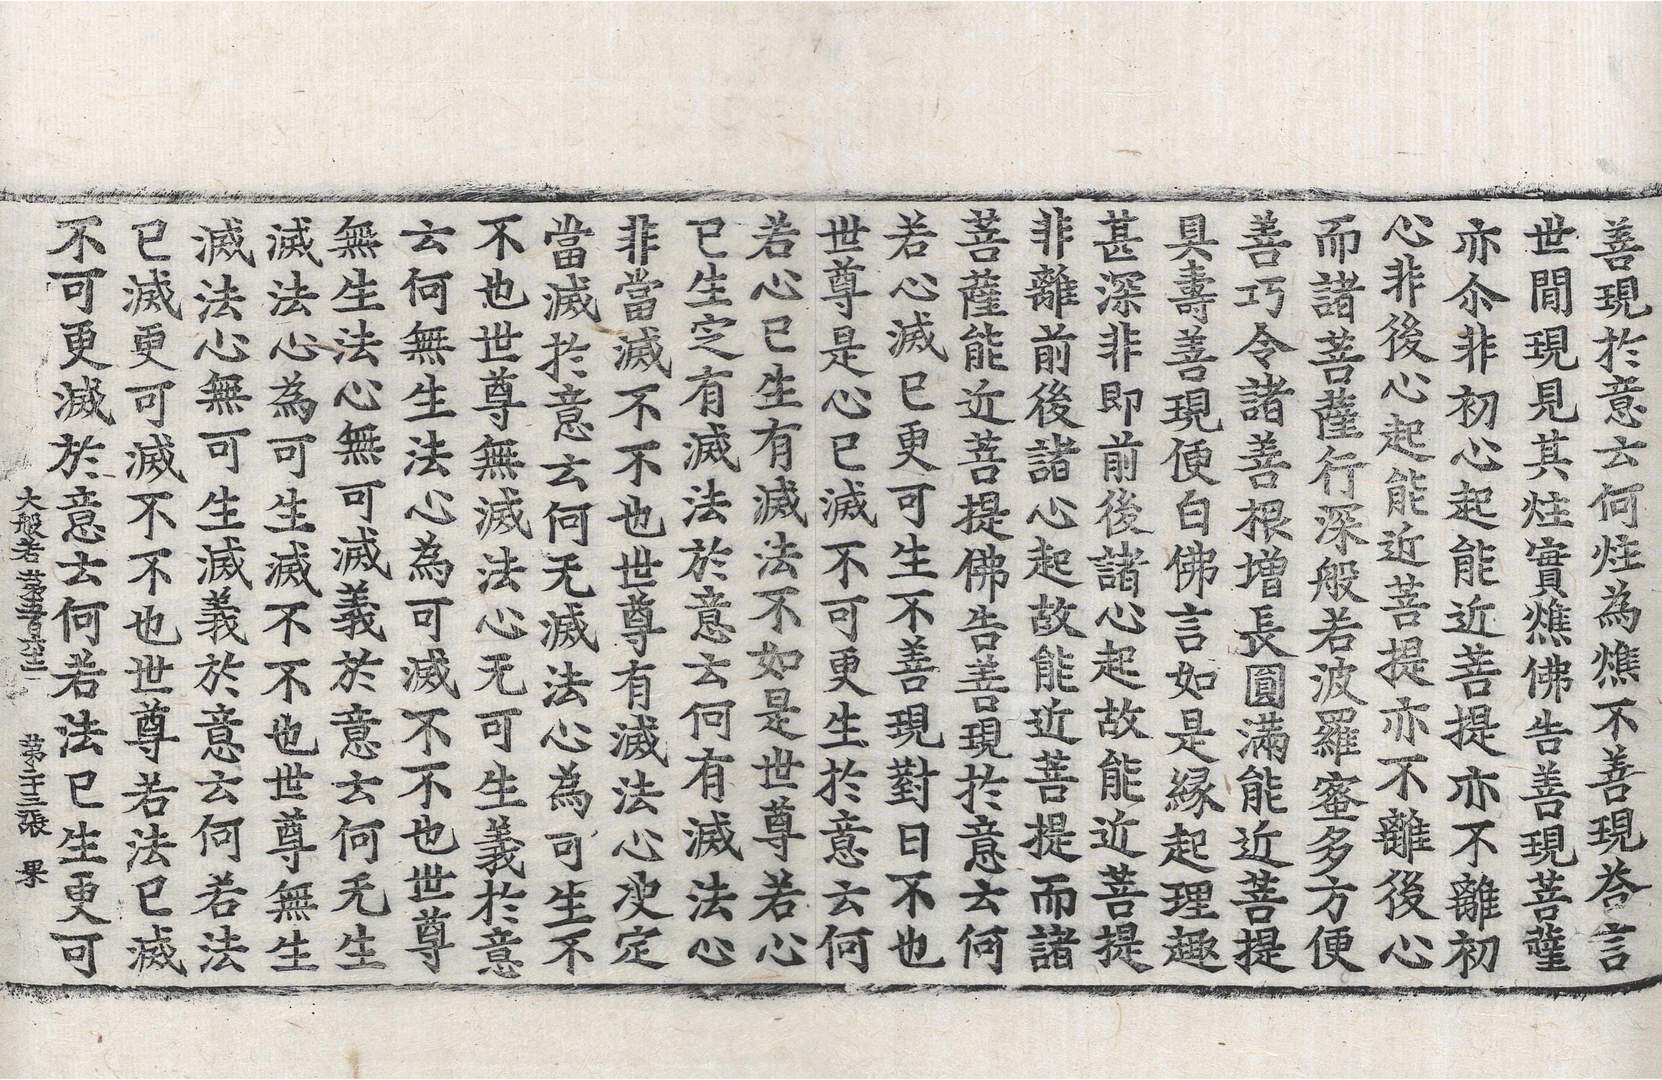 善現於意云何炷為燋不善現荅言
世間現見其炷實燋佛告善現菩薩
亦尒非初心起能近菩提亦不離初
心非後心起能近菩提亦不離後心
而諸菩薩行深般若波羅蜜多方便
善巧令諸善根增長圓滿能近菩提
具壽善現便白佛言如是緣起理趣
甚深非即前後諸心起故能近菩提
非離前後諸心起故能近菩提而諸
菩薩能近菩提佛告善現於意云何
若心滅已更可生不善現對曰不也
世尊是心已滅不可更生於意云何
若心已生有滅法不如是世尊若心
已生定有滅法於意云何有滅法心
非當滅不不也世尊有滅法心決定
當滅於意云何无滅法心為可生不
不也世尊無滅法心无可生義於意
云何無生法心為可滅不不也世尊
無生法心無可滅義於意云何无生
滅法心為可生滅不不也世尊無生
滅法心無可生滅義於意云何若法
已滅更可滅不不也世尊若法已滅
不可更滅於意云何若法已生更可
大般若第五百六十二 第二十三張 果